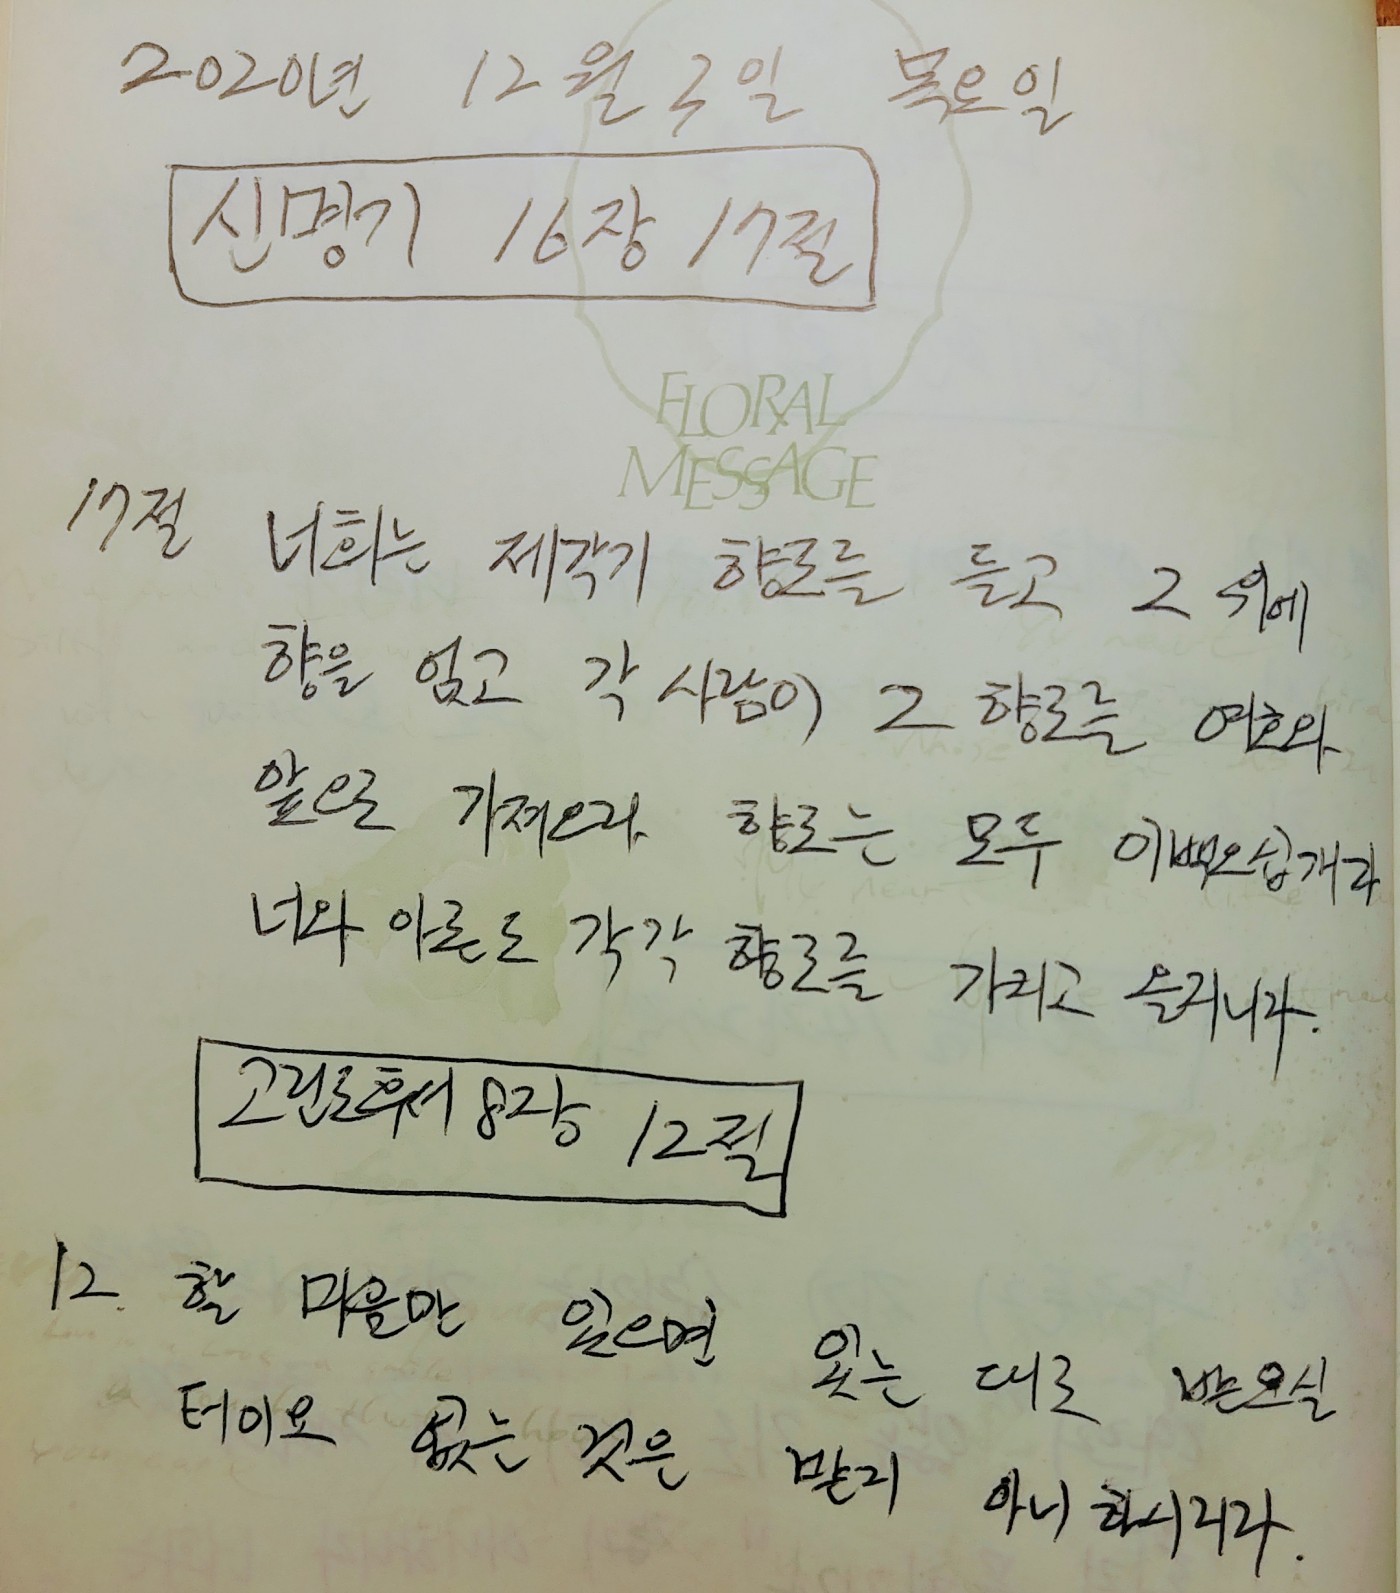 2020년 12월 3일 목요일
신명기 16장 17절
FLORAL
MESSAGE
17절 너희는 제각기 향로를 들고 그 위에
향을 얹고 각 사람이 그 향로를 여호와
앞으로 가져오라 향로는 모두 이백오십개라
너와 아론도 각각 향로를 가지고 올지니라.
고린도후서 8장 12절
12. 할 마음만 있으면 있는 대로 받으실
터이요 없는 것은 받지 아니하시리라.